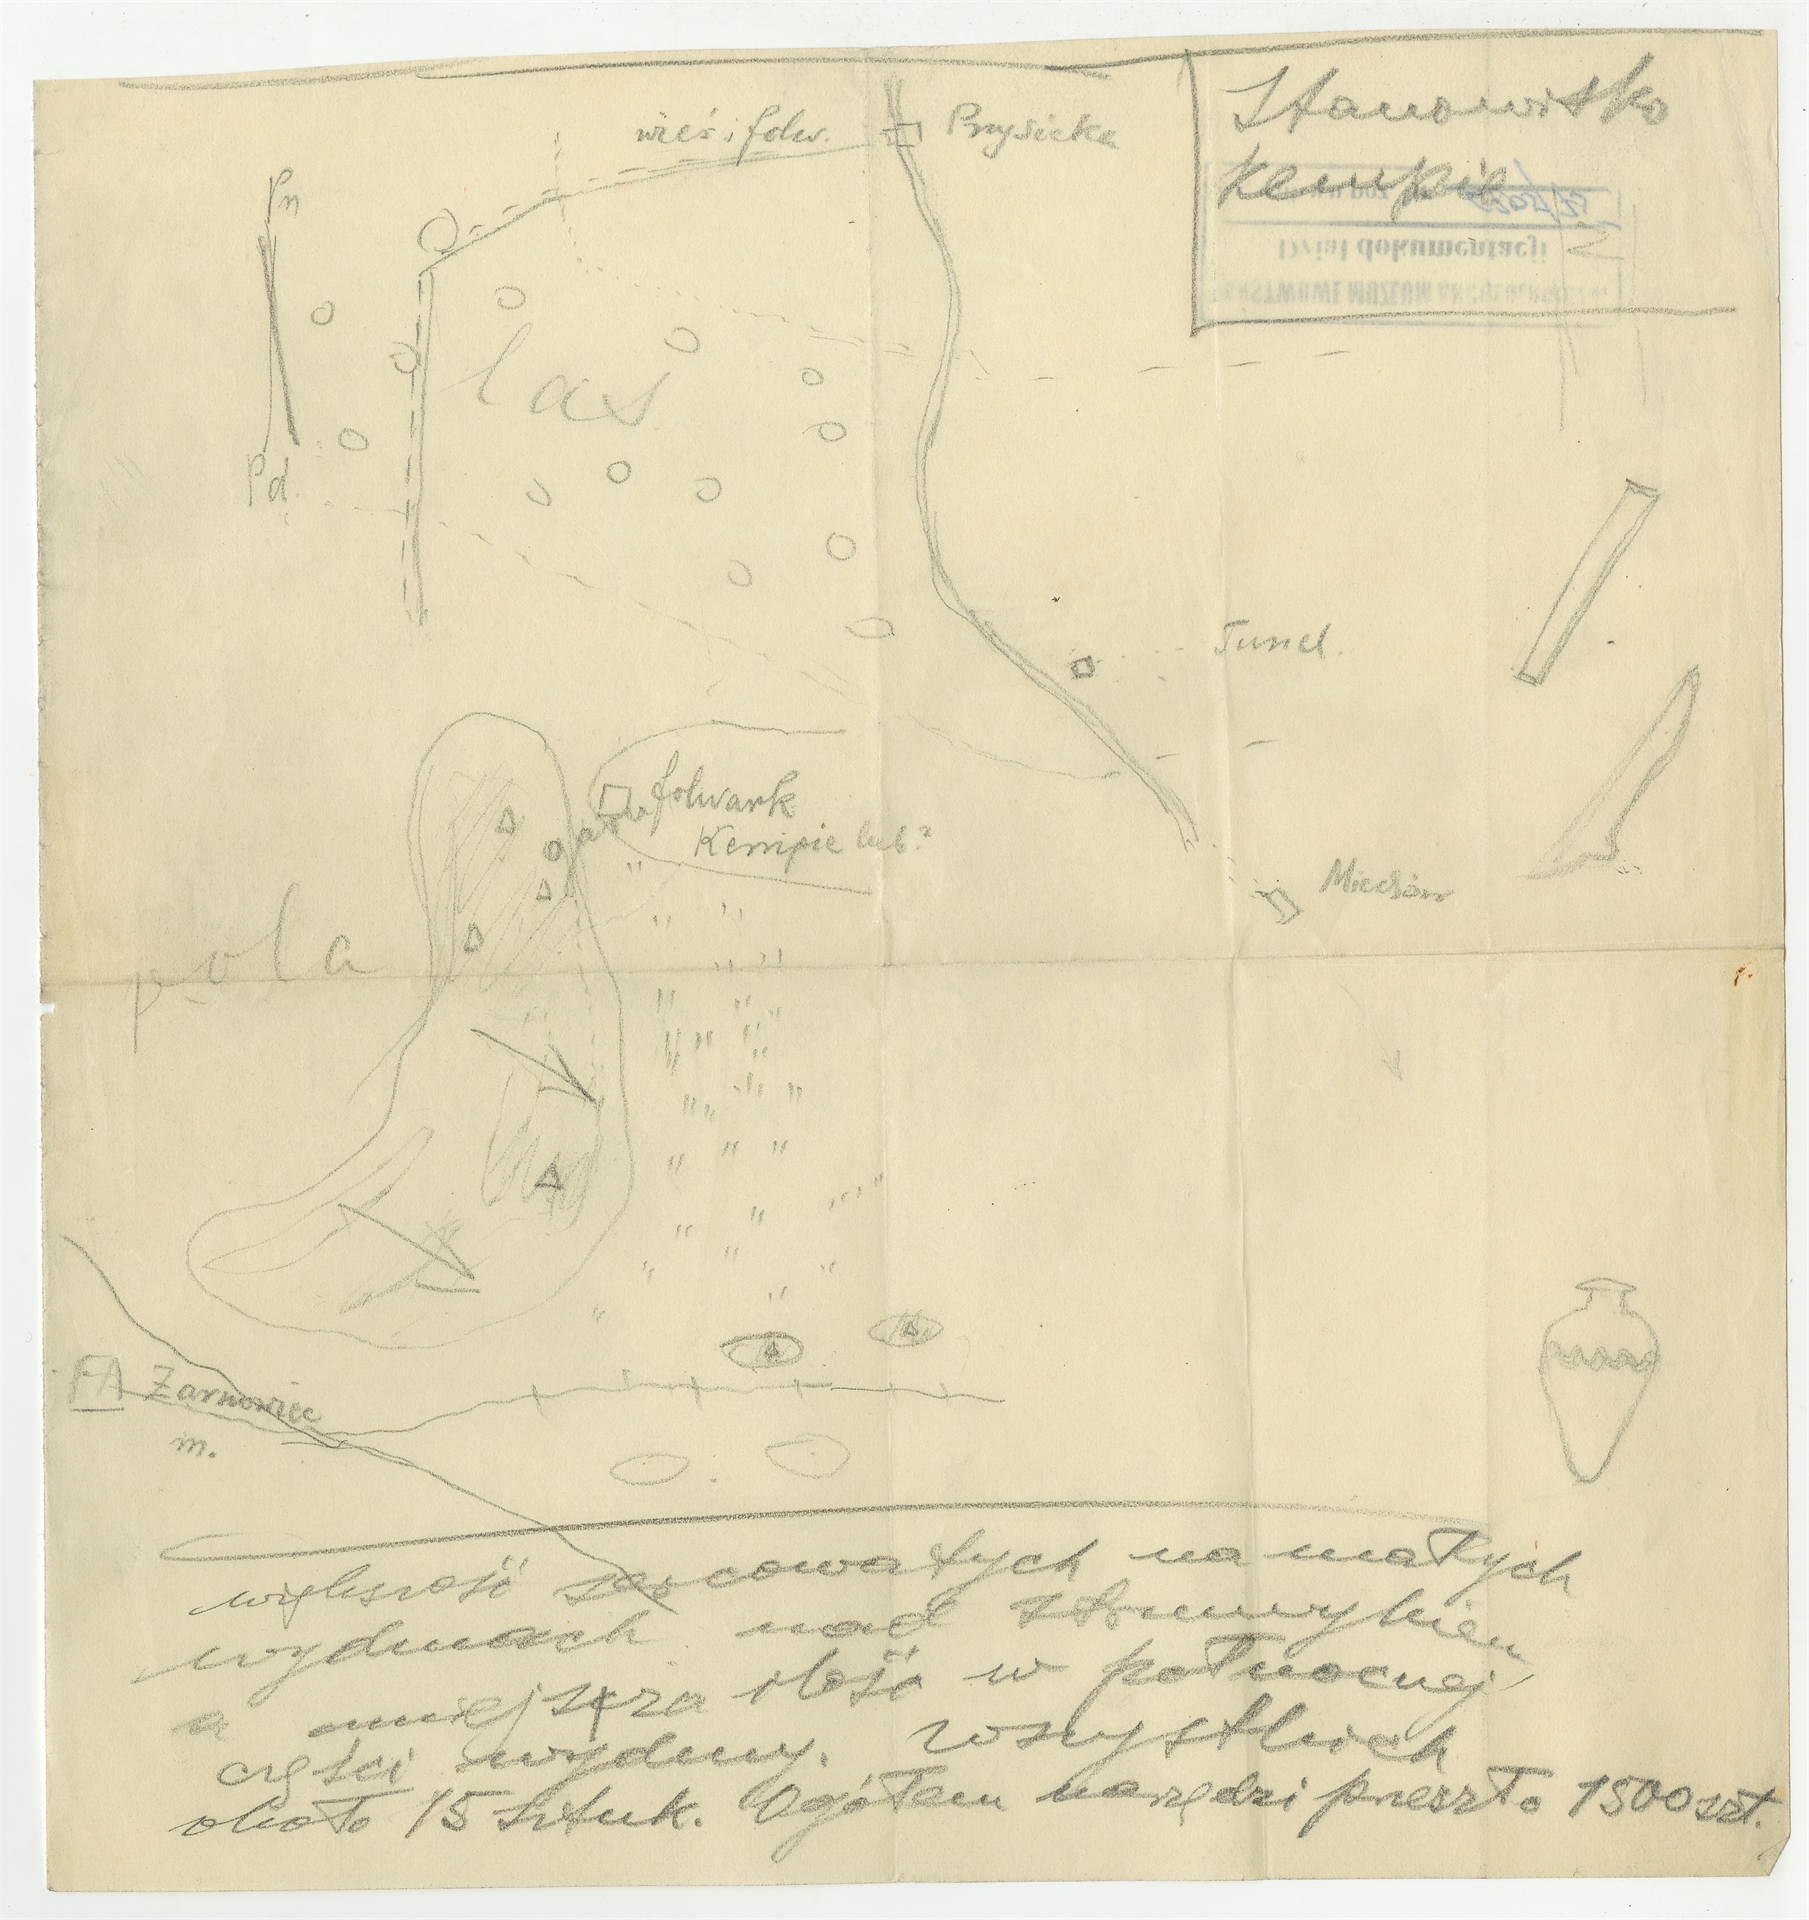 Stanowisko
Kempie
Dział dokumentacji
PAŃSTWOWE MUZEUM ARCHEOLOGICZNE
wieś i folw.
Przysieka
Pn
las
Pd.
Tunel.
folwark
Kempie lub?
Miechów
pola
Żarnowiec
m.
większość sercowatych na małych
wydmach nad strumykiem
a mniejsza ilość w północnej
części wydmy. Wszystkich
około 15 sztuk. Ogółem narzędzi przeszło 1500 szt.